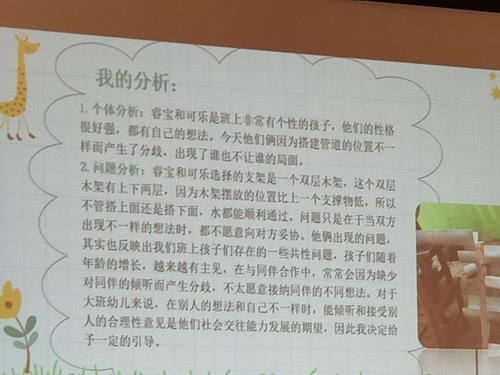 我的分析：
1.个体分析：睿宝和可乐是班上非常有个性的孩子，他们的性格
很好强，都有自己的想法。今天他们俩因为搭建管道的位置不一
样而产生了分歧，出现了谁也不让谁的局面。
2.问题分析：睿宝和可乐选择的支架是一个双层木架，这个双层
木架有上下两层，因为木架摆放的位置比上一个支撑物低，所以
不管搭上面还是搭下面，水都能顺利通过。问题只是在于当双方
出现不一样的想法时，都不愿意向对方妥协。他俩出现的问题，
其实也反映出我们班上孩子们存在的一些共性问题，孩子们随着
年龄的增长，越来越有主见，在与同伴合作中，常常会因为缺少
对同伴的倾听而产生分歧，不太愿意接纳同伴的不同想法。对于
大班幼儿来说，在别人的想法和自己不一样时，能倾听和接受别
人的合理性意见是他们社会交往能力发展的期望，因此我决定给
予一定的引导。